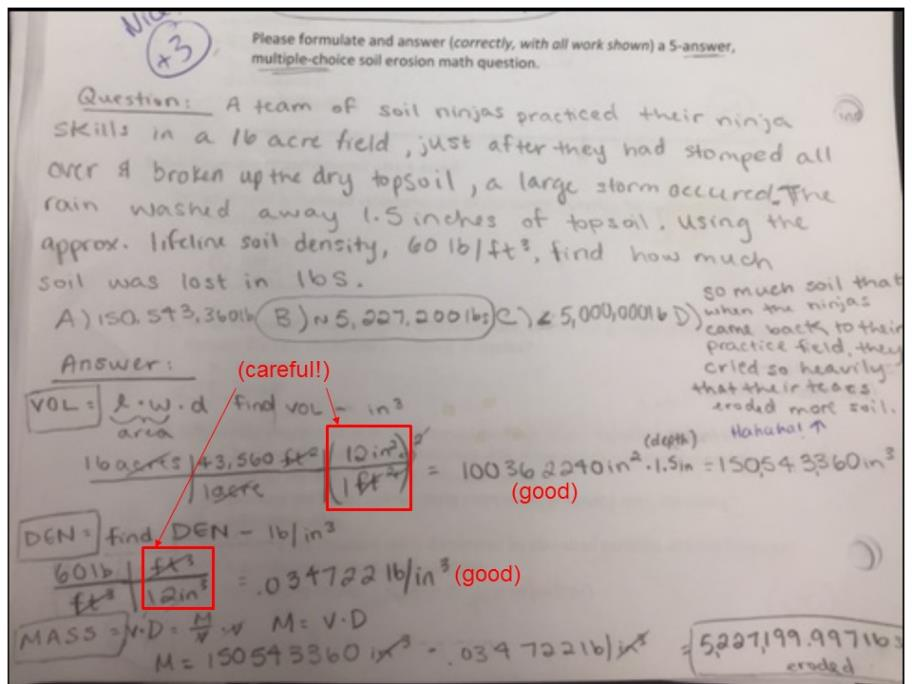 +3
Please formulate and answer (correctly, with all work shown) a 5-answer,
multiple-choice soil erosion math question.
Question: A team of soil ninjas practiced their ninja
skills in a 16 acre field, just after they had stomped all
over & broken up the dry topsoil, a large storm occured. The
rain washed away 1.5 inches of topsoil. Using the
approx. lifeline soil density, 60 lb/ft³, find how much
soil was lost in lbs.
A) 150,543,360lb B) ~5,227,200lbs C) < 5,000,000lb D) so much soil that
when the ninjas
came back to their
practice field, they
cried so heavily
that their tears
eroded more soil.
Hahaha! ↑
Answer:
(careful!)
VOL = l·w·d find VOL - in³
area
16 acres | 43,560 ft² | (12in²)² = 100362240in² · 1.5in = 150,543,360in³
1 acre (1 ft²)
(depth)
(good)
DEN = find DEN - lb/in³
60 lb | ft³ = .034722 lb/in³ (good)
ft³ | 12in³
MASS = V·D = M/V · V M = V·D
M = 150543360 in³ · .034722 lb/in³ = 5,227,199.997 lbs
eroded